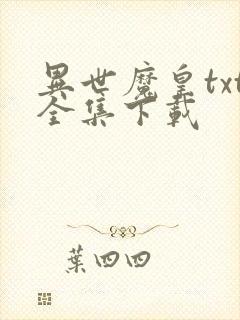 異世魔皇txt
全集下載
葉四四